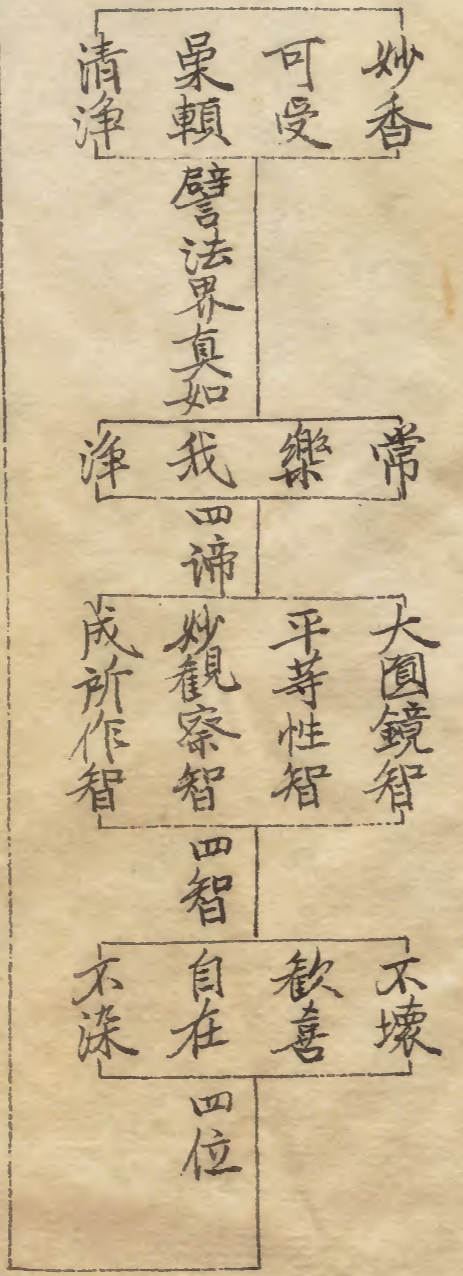 妙香
可受
柔輭
清淨
譬法界真如
常
樂
我
淨
四諦
大圓鏡智
平等性智
妙觀察智
成所作智
四智
不壞
歡喜
自在
不染
四位